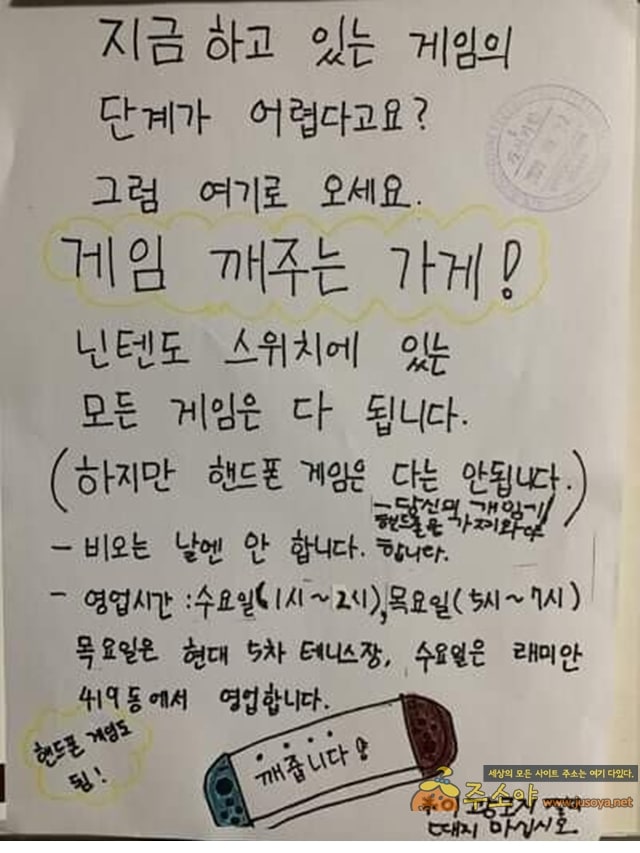 지금 하고 있는 게임의
단계가 어렵다고요?
그럼 여기로 오세요.
게임 깨주는 가게!
닌텐도 스위치에 있는
모든 게임은 다 됩니다.
(하지만 핸드폰 게임은 다는 안됩니다.)
- 당신의 개임기/
핸드폰은 가지와야
합니다.
- 비오는 날엔 안 합니다.
- 영업시간 : 수요일(1시~2시), 목요일(5시~7시)
목요일은 현대 5차 테니스장, 수요일은 래미안
419동에서 영업합니다.
핸드폰 게임도
됨!
깨줍니다!
세상의 모든 사이트 주소는 여기 다있다.
주소야 www.jusoya.net
떼지 마십시오.